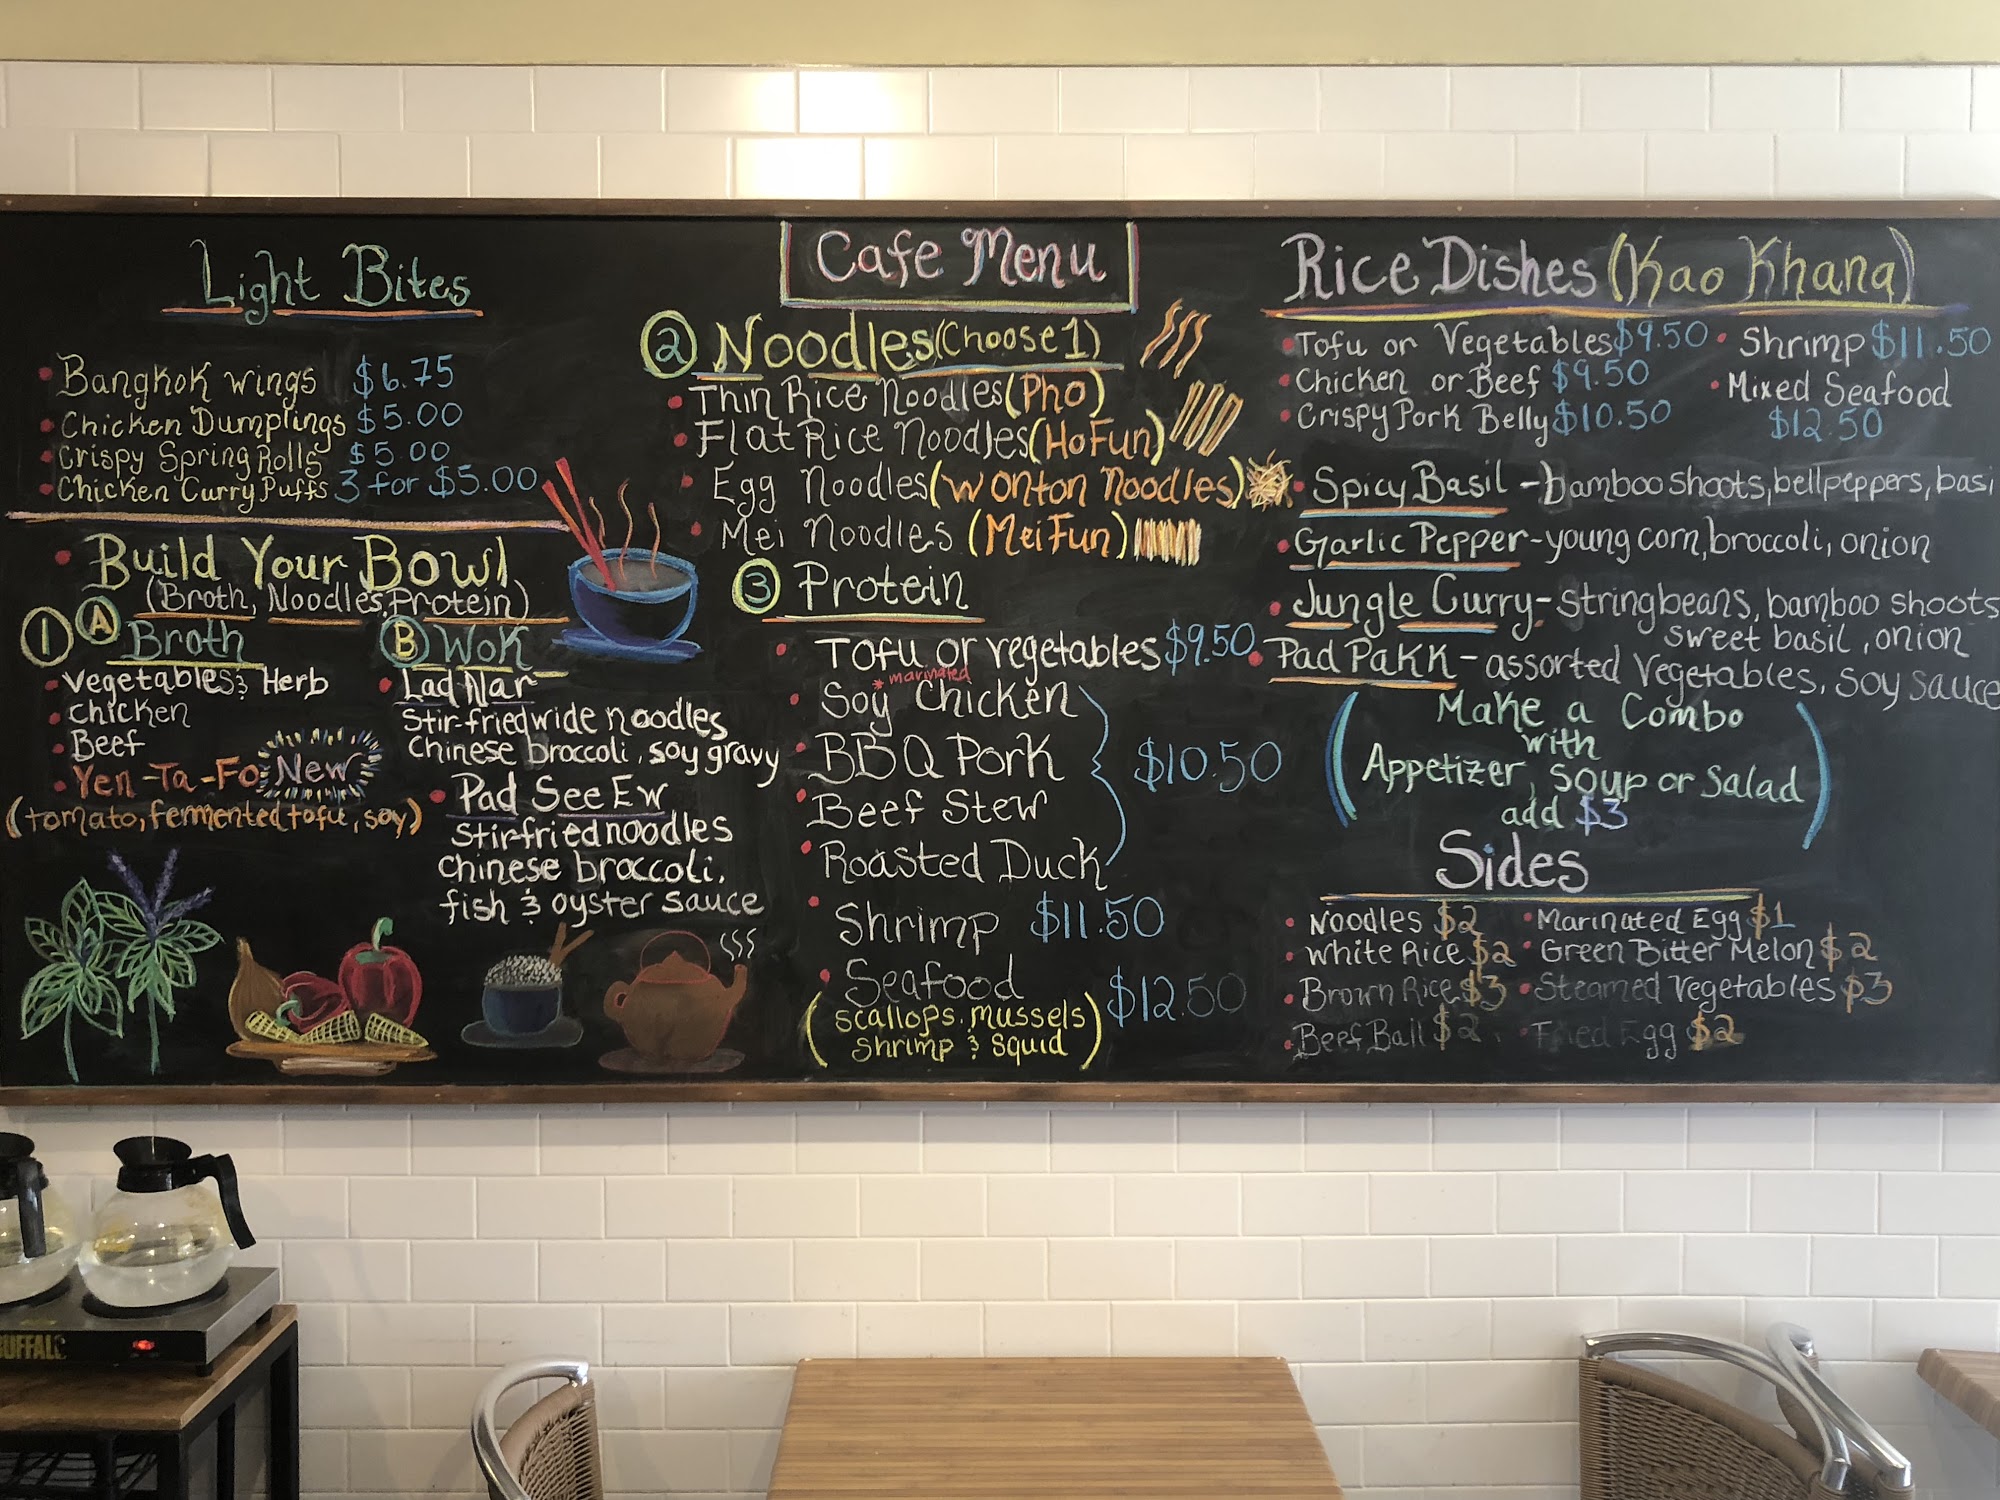 Cafe Menu
Light Bites
Bangkok wings $6.75
Chicken Dumplings $5.00
Crispy Spring Rolls $5.00
Chicken Curry Puffs 3 for $5.00
Build Your Bowl
(Broth, Noodles, Protein)
1 A Broth
Vegetables & Herb
Chicken
Beef
Yen-Ta-Fo New
(tomato, fermented tofu, soy)
B Wok
Lad Nar
Stir-fried wide noodles
Chinese broccoli, soy gravy
Pad See Ew
Stir-fried noodles
Chinese broccoli,
fish & oyster sauce
2 Noodles (Choose 1)
Thin Rice Noodles (Pho)
Flat Rice Noodles (Ho Fun)
Egg Noodles (Wonton Noodles)
Mei Noodles (Mei Fun)
3 Protein
Tofu or vegetables $9.50
*marinated
Soy Chicken
BBQ Pork
$10.50
Beef Stew
Roasted Duck
Shrimp $11.50
Seafood $12.50
(scallops, mussels
shrimp & squid)
Rice Dishes (Kao Khang)
Tofu or Vegetables $9.50
Chicken or Beef $9.50
Crispy Pork Belly $10.50
Shrimp $11.50
Mixed Seafood
$12.50
Spicy Basil - bamboo shoots, bell peppers, basi
Garlic Pepper - young corn, broccoli, onion
Jungle Curry - stringbeans, bamboo shoots
sweet basil, onion
Pad Pakk - assorted vegetables, soy sauce
(Make a Combo
with
Appetizer, soup or Salad
add $3)
Sides
Noodles $2
White Rice $2
Brown Rice $3
Beef Ball $2
Marinated Egg $1
Green Bitter Melon $2
Steamed Vegetables $3
Fried Egg $2
BUFFALO